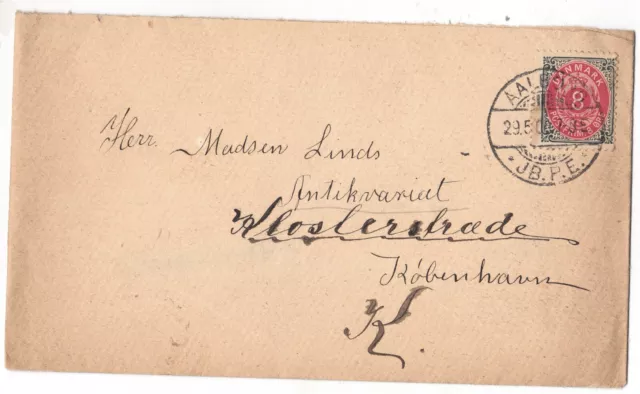 DANMARK
8
AALB
29.5.0
JB.P.E.
Herr. Madsen Linds
Antikvariat
Klosterstræde
København
K.